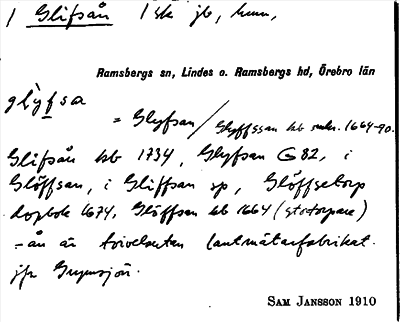 / Glifsån / sk jb, hmn,
Ramsbergs sn, Lindes o. Ramsbergs hd, Örebro län
glyfsa
= Glyfsan / Glyffssan kb 1664-90.
Glifsån kb 1734, Glyfsan G 82, i
Glöffsan, i Gliffsan sp, Glöffsetorp
dopbok 1674, Glöffsan kb 1664 (stortorpare)
-ån är tvivelsutan lantmätarfabrikat.
jfr Grymsjön.
SAM JANSSON 1910